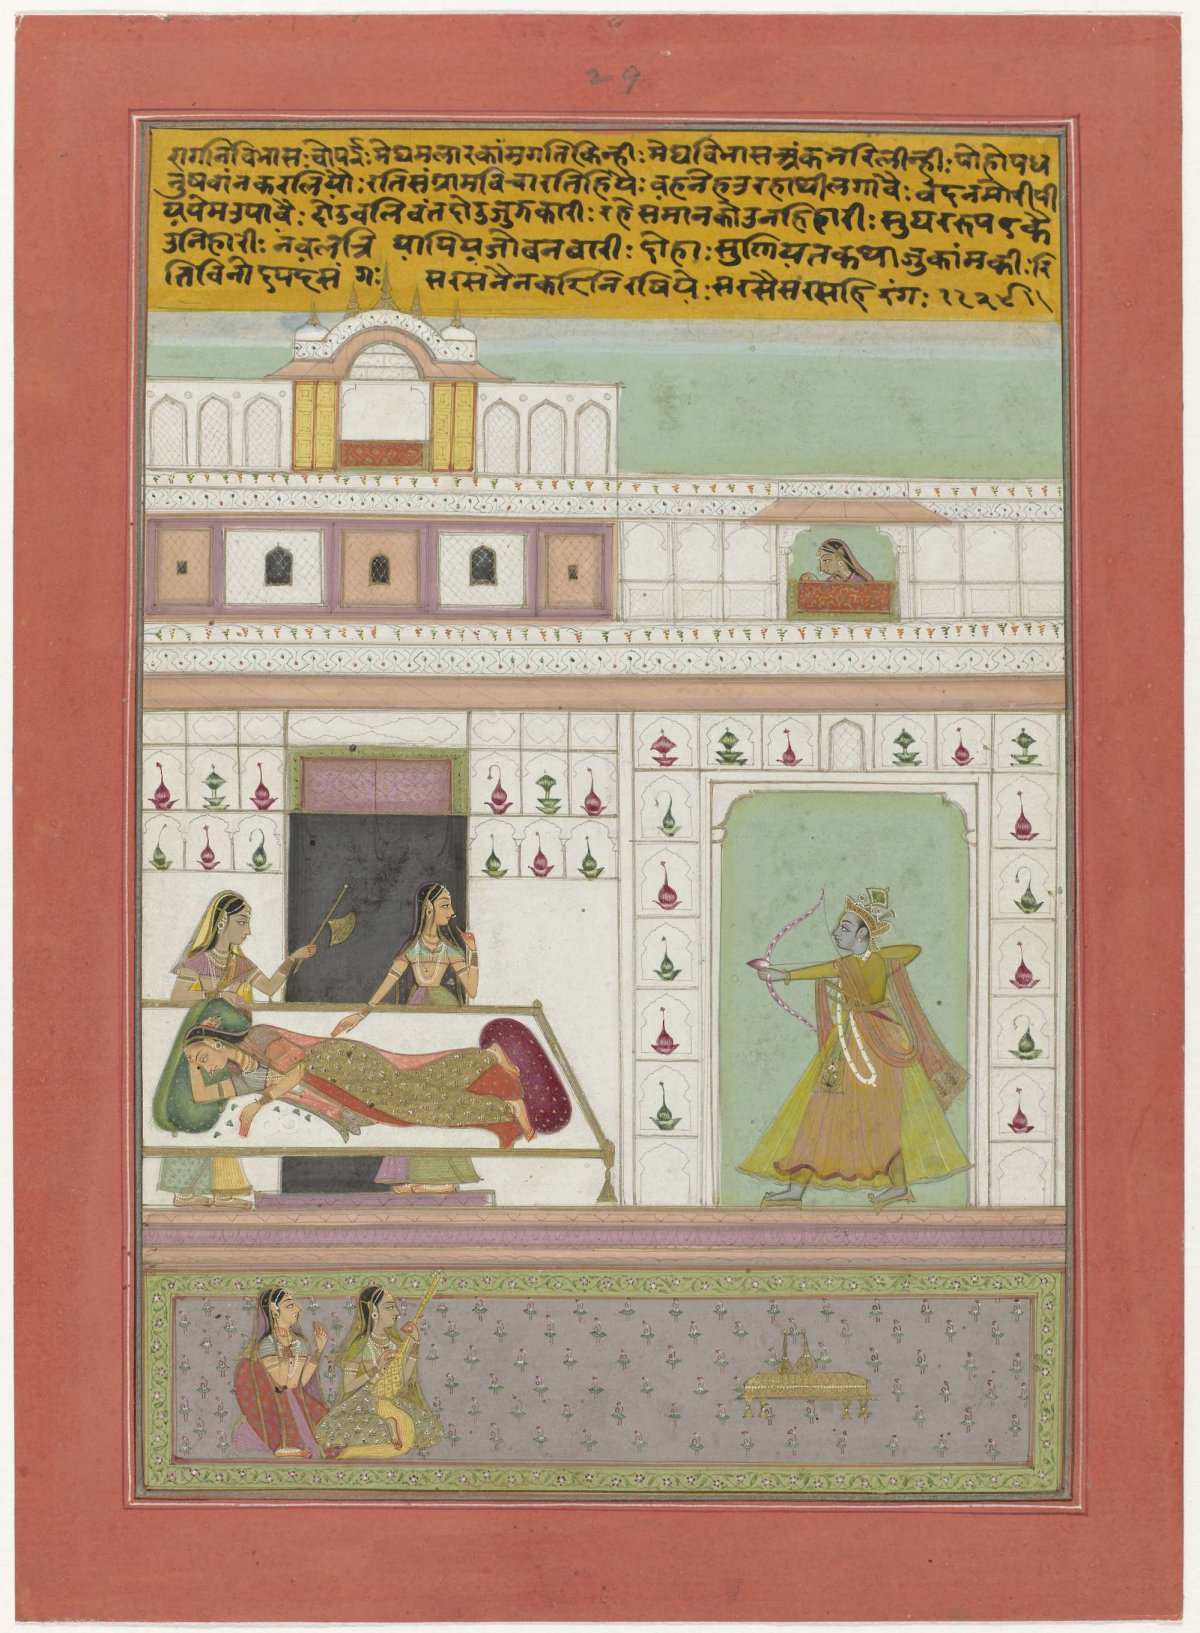 २९
रागनि विभास: चौपई: मेघमलार कांमगति किन्ही: मेघ विभास अंक भरि लीन्ही: पोहोपध
नुष बांन कर लियौ: रति संग्राम विचारति हियै: वह नेह उर हाथी लगावै: वेदन मोरी पी
य पेम उपावै: दोउ बलिवंत दोउ जुगकारी: रहे समान कोउ नहि हारी: सुघर रूप
उनिहारी: नवल त्रिया पिय जोबन बारी: दोहा: सुणियत कथा जु कांम की: रि
ति विनोद पदसंग: सरस नैन करि निरषिये: सरसै सरस हि रंग: